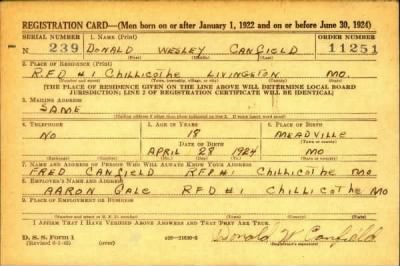 REGISTRATION CARD—(Men born on or after January 1, 1922 and on or before June 30, 1924)
SERIAL NUMBER 1. NAME (Print) ORDER NUMBER
N 239 DONALD WESLEY CANFIELD 11251
(First) (Middle) (Last)
2. PLACE OF RESIDENCE (Print)
R.F.D #1 CHILLICOTHE LIVINGSTON MO.
(Number and street) (Town, township, village, or city) (County) (State)
[THE PLACE OF RESIDENCE GIVEN ON THE LINE ABOVE WILL DETERMINE LOCAL BOARD
JURISDICTION; LINE 2 OF REGISTRATION CERTIFICATE WILL BE IDENTICAL]
3. MAILING ADDRESS
SAME
[Mailing address if other than place indicated on line 2. If same insert word same]
4. TELEPHONE 5. AGE IN YEARS 6. PLACE OF BIRTH
NO 18 MEADVILLE
DATE OF BIRTH (Town or county)
APRIL 28 1924 MO
(Exchange) (Number) (Mo.) (Day) (Yr.) (State or country)
7. NAME AND ADDRESS OF PERSON WHO WILL ALWAYS KNOW YOUR ADDRESS
FRED CANFIELD RFD #1 CHILLICOTHE MO
8. EMPLOYER'S NAME AND ADDRESS
AARON GALE RFD #1 CHILLICOTHE MO
9. PLACE OF EMPLOYMENT OR BUSINESS
(Number and street or R. F. D. number) (Town) (County) (State)
I AFFIRM THAT I HAVE VERIFIED ABOVE ANSWERS AND THAT THEY ARE TRUE.
D. S. S. Form 1
(Revised 6-9-42) Donald W. Canfield